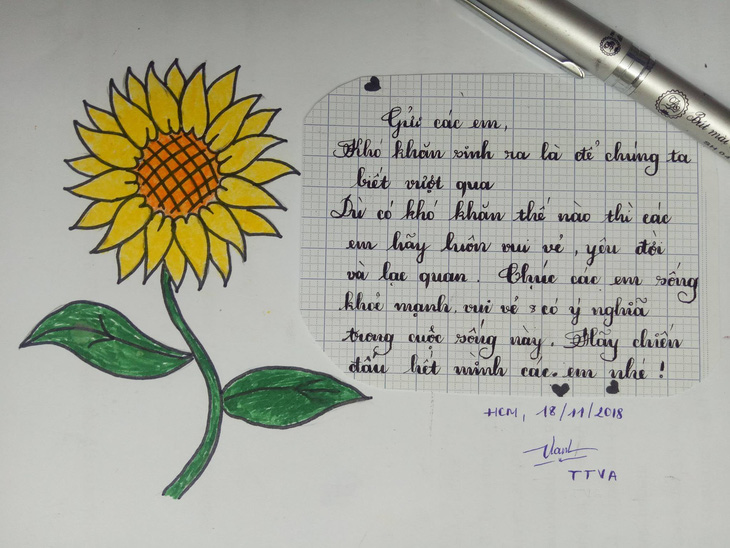 Gửi các em,
Khó khăn sinh ra là để chúng ta
biết vượt qua
Dù có khó khăn thế nào thì các
em hãy luôn vui vẻ, yêu đời
và lạc quan. Chúc các em sống
khoẻ mạnh, vui vẻ & có ý nghĩa
trong cuộc sống này. Hãy chiến
đấu hết mình các em nhé!
HCM, 18/11/2018
TTVA
Bút mài